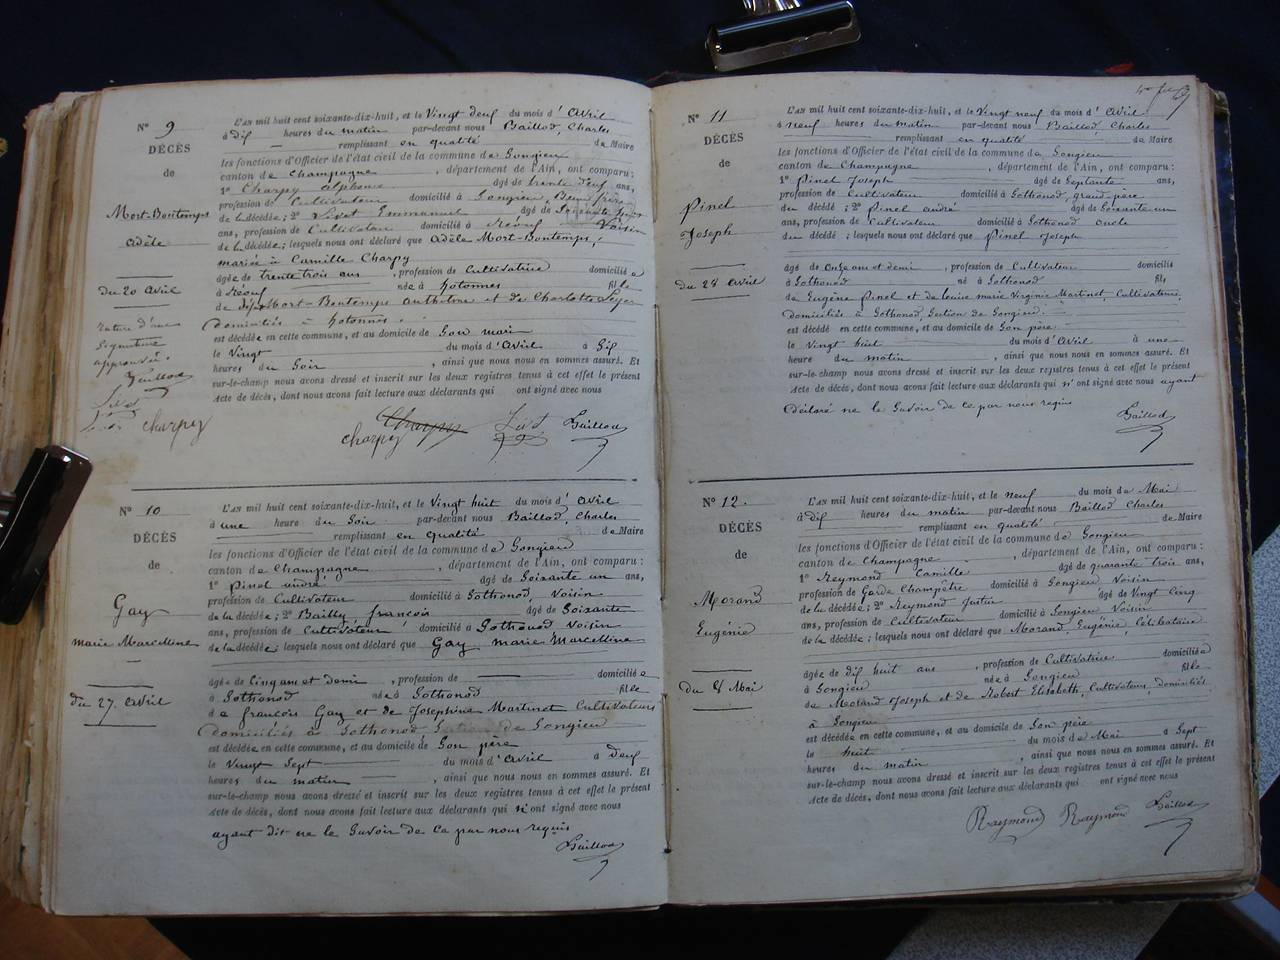 N° 9
DÉCÈS
de
Mort-Bontemps
Adèle
du 20 Avril
Rature d'une
Signature
approuvée.
Baillod
charpy
L'AN mil huit cent soixante-dix-huit, et le Vingt deux du mois d'Avril
à dix heures du matin par-devant nous Baillod, Charles
remplissant en qualité de Maire
les fonctions d'Officier de l'état civil de la commune de Songieu
canton de Champagne, département de l'Ain, ont comparu :
1° Charpy Alphonse âgé de trente deux ans,
profession de Cultivateur domicilié à Songieu, Beau frère
de la décédée ; 2° Emmanuel âgé de
ans, profession de Cultivateur domicilié à Voisin
de la décédée ; lesquels nous ont déclaré que Adèle Mort-Bontemps,
mariée à Camille Charpy
âgée de trente trois ans, profession de Cultivatrice domiciliée
à née à hotonnes fille
de Mort-Bontemps Anthelme et de Charlotte
domiciliés à hotonnes.
est décédée en cette commune, et au domicile de Son mari
le Vingt du mois d'Avril à Six
heures du Soir, ainsi que nous nous en sommes assuré. Et
sur-le-champ nous avons dressé et inscrit sur les deux registres tenus à cet effet le présent
Acte de décès, dont nous avons fait lecture aux déclarants qui ont signé avec nous
Charpy
charpy Baillod
N° 10
DÉCÈS
de
Gay
marie Marcelline
du 27 Avril
L'AN mil huit cent soixante-dix-huit, et le Vingt huit du mois d'Avril
à une heure du Soir par-devant nous Baillod, Charles
remplissant en qualité de Maire
les fonctions d'Officier de l'état civil de la commune de Songieu
canton de Champagne, département de l'Ain, ont comparu :
1° Pinel andré âgé de Soixante un ans,
profession de Cultivateur domicilié à Sothonod, Voisin
de la décédée ; 2° Bailly françois âgé de Soixante
ans, profession de Cultivateur domicilié à Sothonod Voisin
de la décédée ; lesquels nous ont déclaré que Gay marie Marcelline
âgée de Cinq ans et demi, profession de domiciliée
à Sothonod née à Sothonod fille
de françois Gay et de Josephine Martinet Cultivateurs
domiciliés à Sothonod Section de Songieu
est décédée en cette commune, et au domicile de Son père
le Vingt Sept du mois d'Avril à deux
heures du matin, ainsi que nous nous en sommes assuré. Et
sur-le-champ nous avons dressé et inscrit sur les deux registres tenus à cet effet le présent
Acte de décès, dont nous avons fait lecture aux déclarants qui n'ont signé avec nous
ayant dit ne le Savoir de ce par nous requis
Baillod
N° 11
DÉCÈS
de
Pinel
Joseph
du 28 Avril
L'AN mil huit cent soixante-dix-huit, et le Vingt neuf du mois d'Avril
à neuf heures du matin par-devant nous Baillod, Charles
remplissant en qualité de Maire
les fonctions d'Officier de l'état civil de la commune de Songieu
canton de Champagne, département de l'Ain, ont comparu :
1° Pinel Joseph âgé de Septante ans,
profession de Cultivateur domicilié à Sothonod, grand père
du décédé ; 2° Pinel andré âgé de Soixante un
ans, profession de Cultivateur domicilié à Sothonod oncle
du décédé ; lesquels nous ont déclaré que Pinel Joseph
âgé de onze ans et demi, profession de Cultivateur domicilié
à Sothonod né à Sothonod fils
de Eugène Pinel et de Louise marie Virginie Martinet, Cultivateurs,
domiciliés à Sothonod, Section de Songieu.
est décédé en cette commune, et au domicile de Son père
le Vingt huit du mois d'Avril à une
heure du matin, ainsi que nous nous en sommes assuré. Et
sur-le-champ nous avons dressé et inscrit sur les deux registres tenus à cet effet le présent
Acte de décès, dont nous avons fait lecture aux déclarants qui n'ont signé avec nous ayant
déclaré ne le Savoir de ce par nous requis
Baillod
N° 12.
DÉCÈS
de
Morand
Eugénie
du 8 Mai
L'AN mil huit cent soixante-dix-huit, et le neuf du mois de Mai
à dix heures du matin par-devant nous Baillod Charles
remplissant en qualité de Maire
les fonctions d'Officier de l'état civil de la commune de Songieu
canton de Champagne, département de l'Ain, ont comparu :
1° Reymond Camille âgé de quarante trois ans,
profession de Garde Champêtre domicilié à Songieu Voisin
de la décédée ; 2° Reymond Justin âgé de Vingt cinq
ans, profession de Cultivateur domicilié à Songieu Voisin
de la décédée ; lesquels nous ont déclaré que Morand, Eugénie, Célibataire
âgée de dix huit ans, profession de Cultivatrice domiciliée
à Songieu née à Songieu fille
de Morand Joseph et de Robert Elisabeth, Cultivateurs, domiciliés
à Songieu
est décédée en cette commune, et au domicile de Son père
le huit du mois de Mai à Sept
heures du matin, ainsi que nous nous en sommes assuré. Et
sur-le-champ nous avons dressé et inscrit sur les deux registres tenus à cet effet le présent
Acte de décès, dont nous avons fait lecture aux déclarants qui ont signé avec nous
Raymond Raymond Baillod